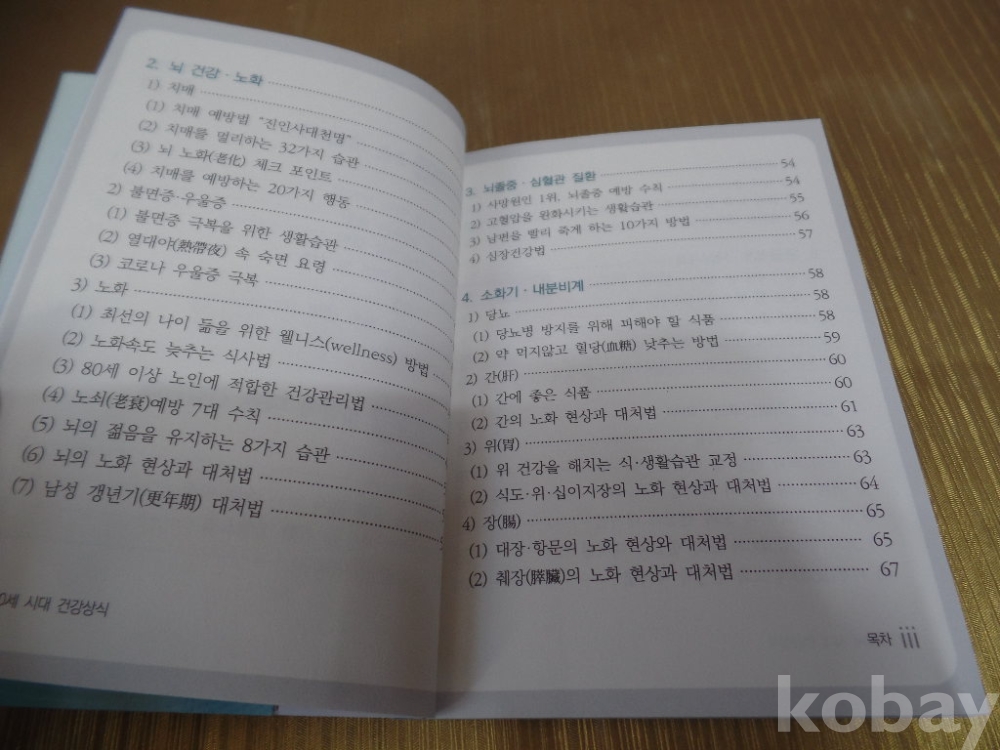 2. 뇌 건강·노화
1) 치매
(1) 치매 예방법 "진인사대천명"
(2) 치매를 멀리하는 32가지 습관
(3) 뇌 노화(老化) 체크 포인트
(4) 치매를 예방하는 20가지 행동
2) 불면증·우울증
(1) 불면증 극복을 위한 생활습관
(2) 열대야(熱帶夜) 속 숙면 요령
(3) 코로나 우울증 극복
3) 노화
(1) 최선의 나이 듦을 위한 웰니스(wellness) 방법
(2) 노화속도 늦추는 식사법
(3) 80세 이상 노인에 적합한 건강관리법
(4) 노쇠(老衰)예방 7대 수칙
(5) 뇌의 젊음을 유지하는 8가지 습관
(6) 뇌의 노화 현상과 대처법
(7) 남성 갱년기(更年期) 대처법
0세 시대 건강상식
3. 뇌졸중·심혈관 질환 54
1) 사망원인 1위. 뇌졸중 예방 수칙 54
2) 고혈압을 완화시키는 생활습관 55
3) 남편을 빨리 죽게 하는 10가지 방법 56
4) 심장건강법 57
4. 소화기·내분비계 58
1) 당뇨 58
(1) 당뇨병 방지를 위해 피해야 할 식품 58
(2) 약 먹지않고 혈당(血糖) 낮추는 방법 59
2) 간(肝) 60
(1) 간에 좋은 식품 60
(2) 간의 노화 현상과 대처법 61
3) 위(胃) 63
(1) 위 건강을 해치는 식·생활습관 교정 63
(2) 식도·위·십이지장의 노화 현상과 대처법 64
4) 장(腸) 65
(1) 대장·항문의 노화 현상와 대처법 65
(2) 췌장(膵臟)의 노화 현상과 대처법 67
목차 iii
kobay